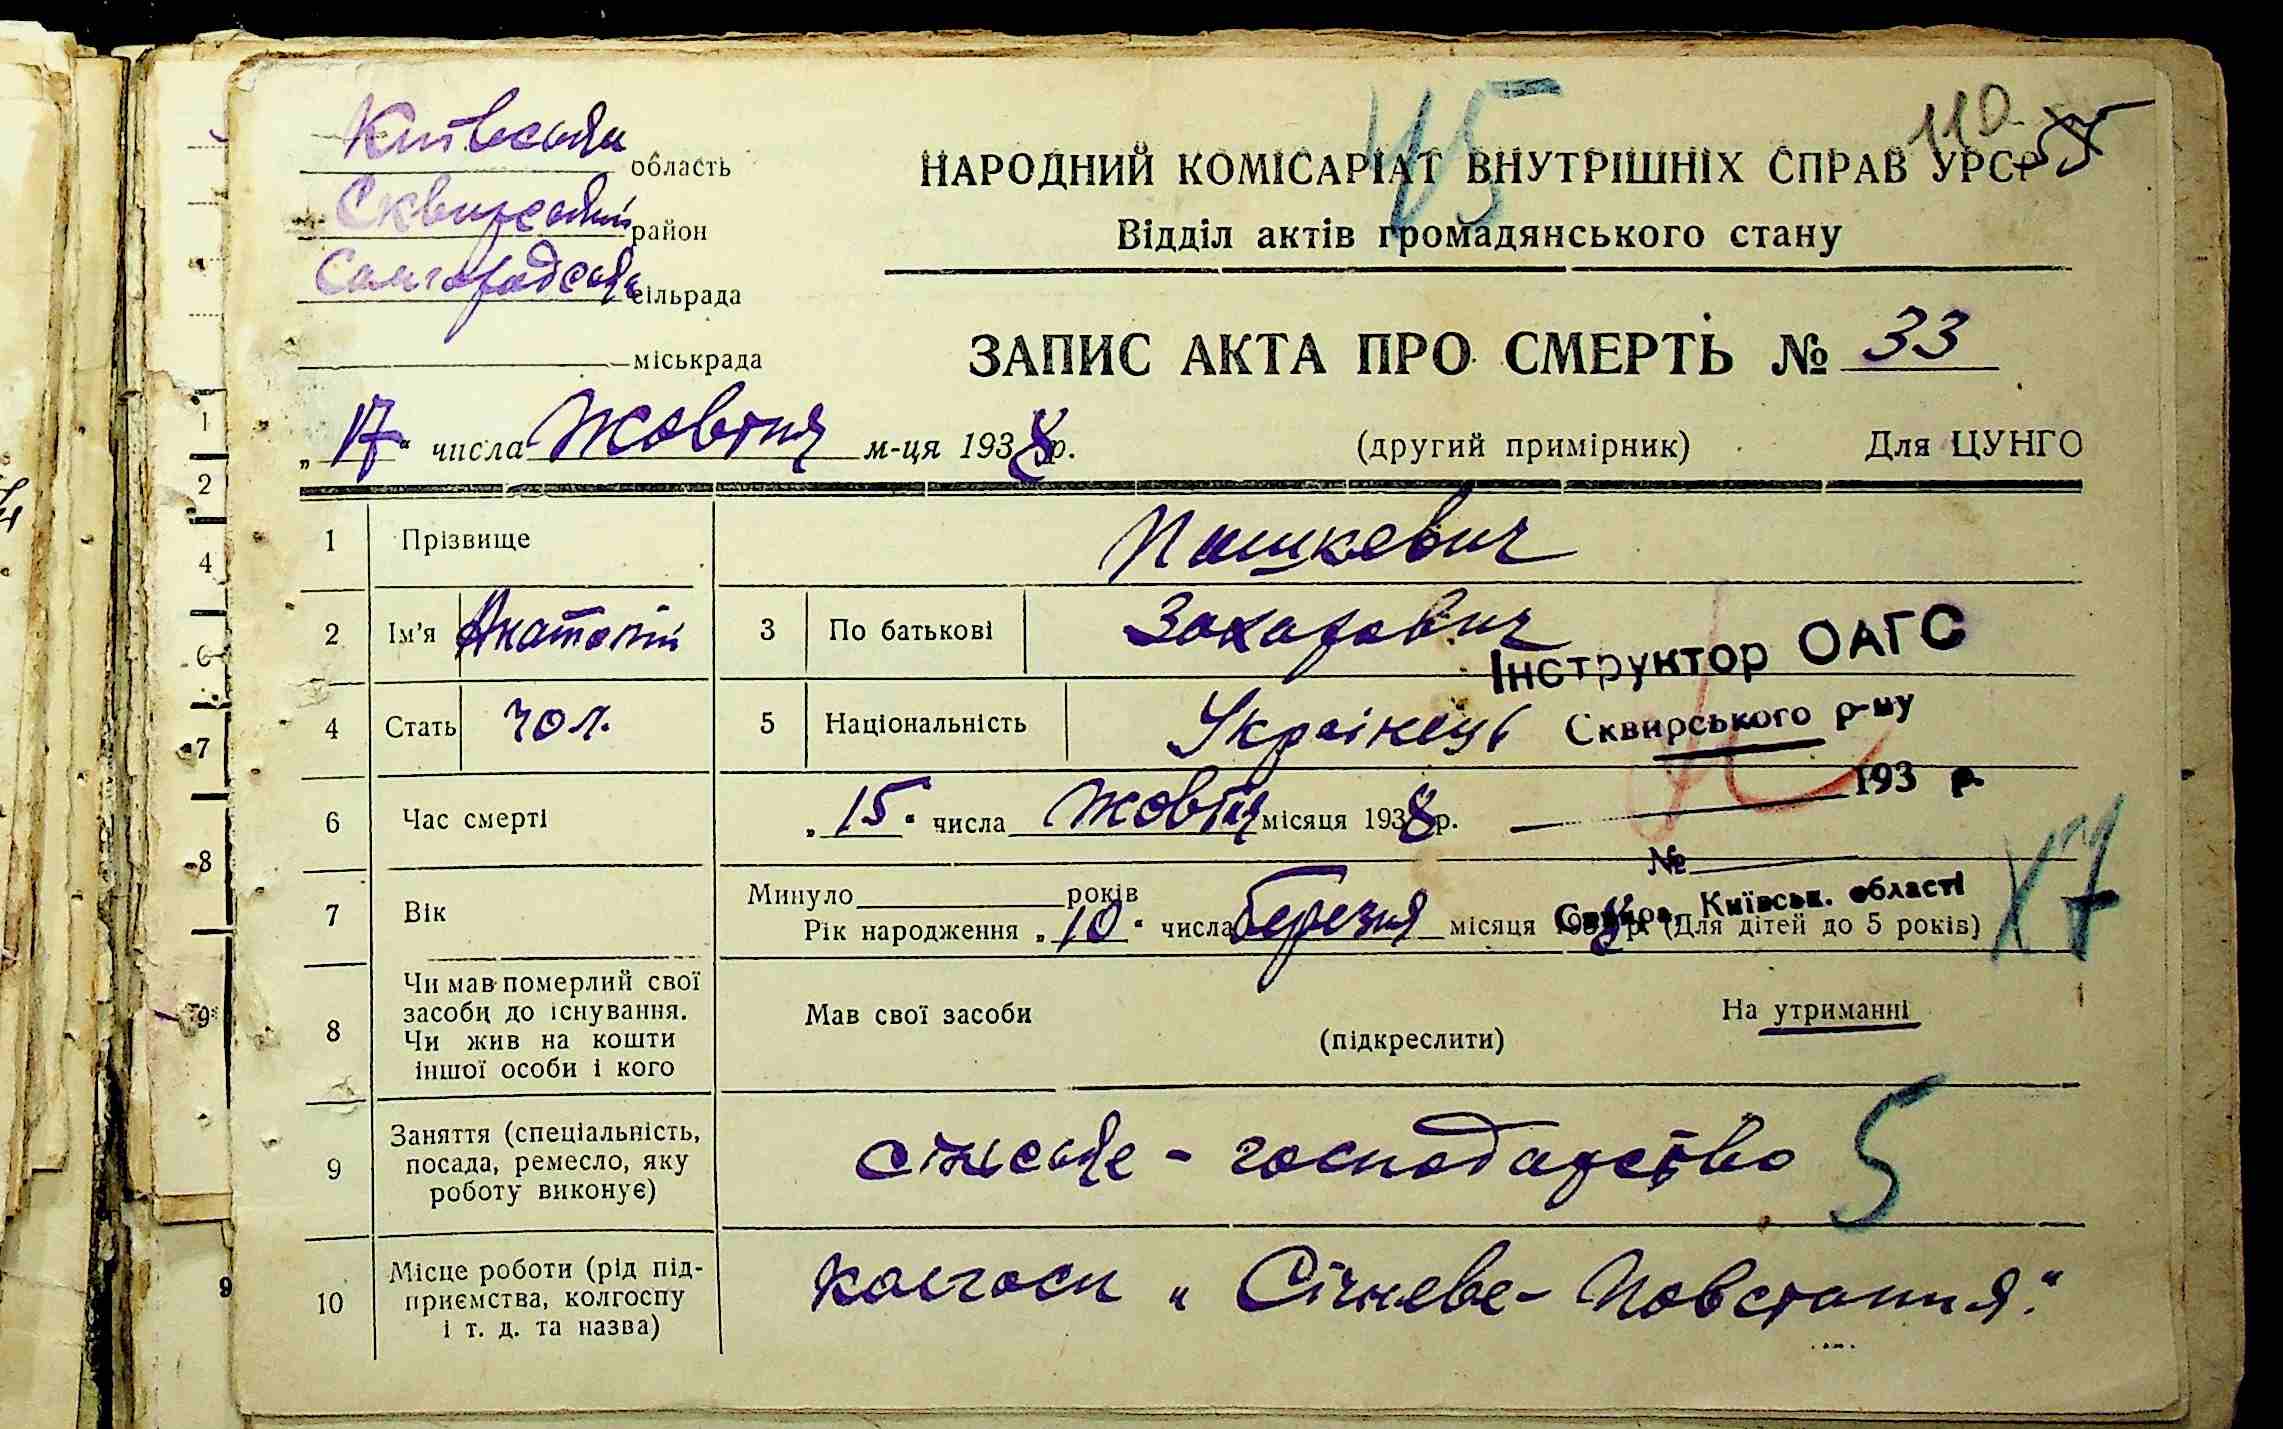 Київська область
Сквирський район
Самгородська сільрада
міськрада
45
110
55
НАРОДНИЙ КОМІСАРІАТ ВНУТРІШНІХ СПРАВ УРСР
Відділ актів громадянського стану
ЗАПИС АКТА ПРО СМЕРТЬ № 33
„17“ числа Жовтня м-ця 1938 р.
(другий примірник)
Для ЦУНГО
1 Прізвище Пашкевич
2 Ім'я Анатолій 3 По батькові Захарович
Інструктор ОАГС
4 Стать чол. 5 Національність Українець
Сквирського р-ну
193 р.
6 Час смерті „15“ числа Жовтня місяця 1938 р.
№
Сквира, Київськ. області
7 Вік Минуло років
Рік народження „10“ числа березня місяця 1938 р. (Для дітей до 5 років)
Х7
8 Чи мав померлий свої засоби до існування. Чи жив на кошти іншої особи і кого
Мав свої засоби
(підкреслити)
На утриманні
9 Заняття (спеціальність, посада, ремесло, яку роботу виконує)
сільське - господарство
5
10 Місце роботи (рід підприємства, колгоспу і т. д. та назва)
колгосп „Січневе - Повстання."
1
2
4
6
7
8
9
9